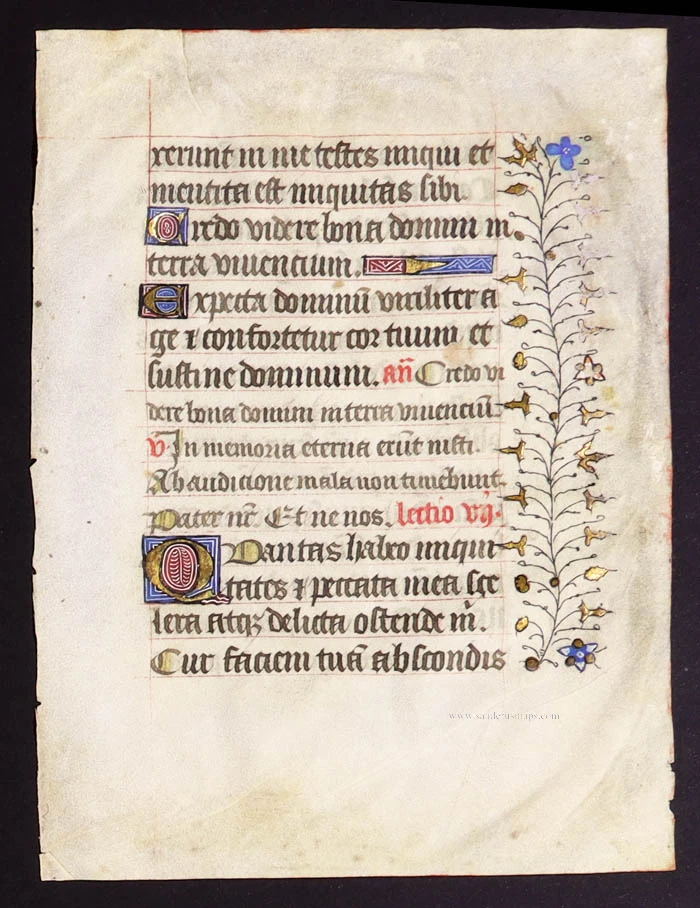 xerunt in me testes iniqui et
mentita est iniquitas sibi.
Credo videre bona domini in
terra viuencium.
Expecta dominū viriliter a
ge ⁊ confortetur cor tuum et
sustine dominum. an̄ Credo vi
dere bona domini in terra viuenciū.
v̄. In memoria eterna erūt iusti.
Ab audicione mala non timebunt.
Pater nr̄. Et ne nos. lectio vij.
Quantas habeo iniqui
tates ⁊ peccata mea sce
lera atqȝ delicta ostende m̄.
Cur faciem tuā abscondis
www.sanderusmaps.com